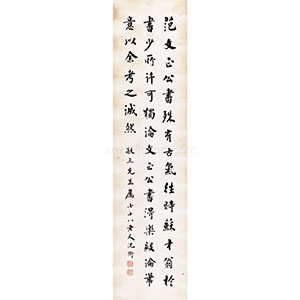 范文正公書殊有古氣往時蘇才翁於
書少所许可獨論文正公書得樂毅論筆
意以余考之誠然 敬三先生屬 七十八老人沈衛